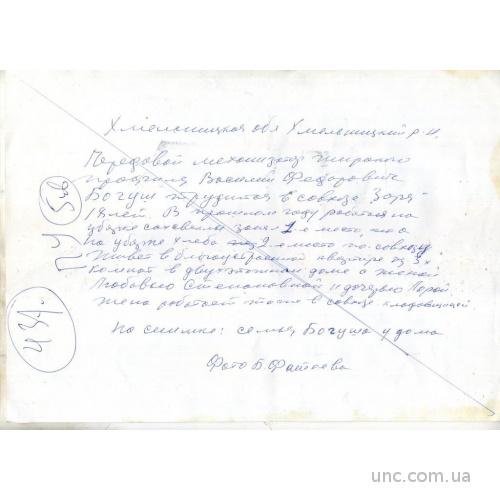 Хмельницкая обл Хмельницкий р-н.
Передовой механизатор широкого
профиля Василий Федорович
Богуш трудится в совхозе Заря-
В прошлом году работая на
уборке сахсвеклы занял 1-е место, то а
на уборке хлеба 2-е место по совхозу
Живет в благоустроенной квартире из 3х
комнат в двухэтажном доме с женой
Любовью Степановной и дочерью Лорой.
жена работает тоже в совхозе кладовщицей
На снимке: семья Богуша у дома
Фото Б.
434.
unc.com.ua